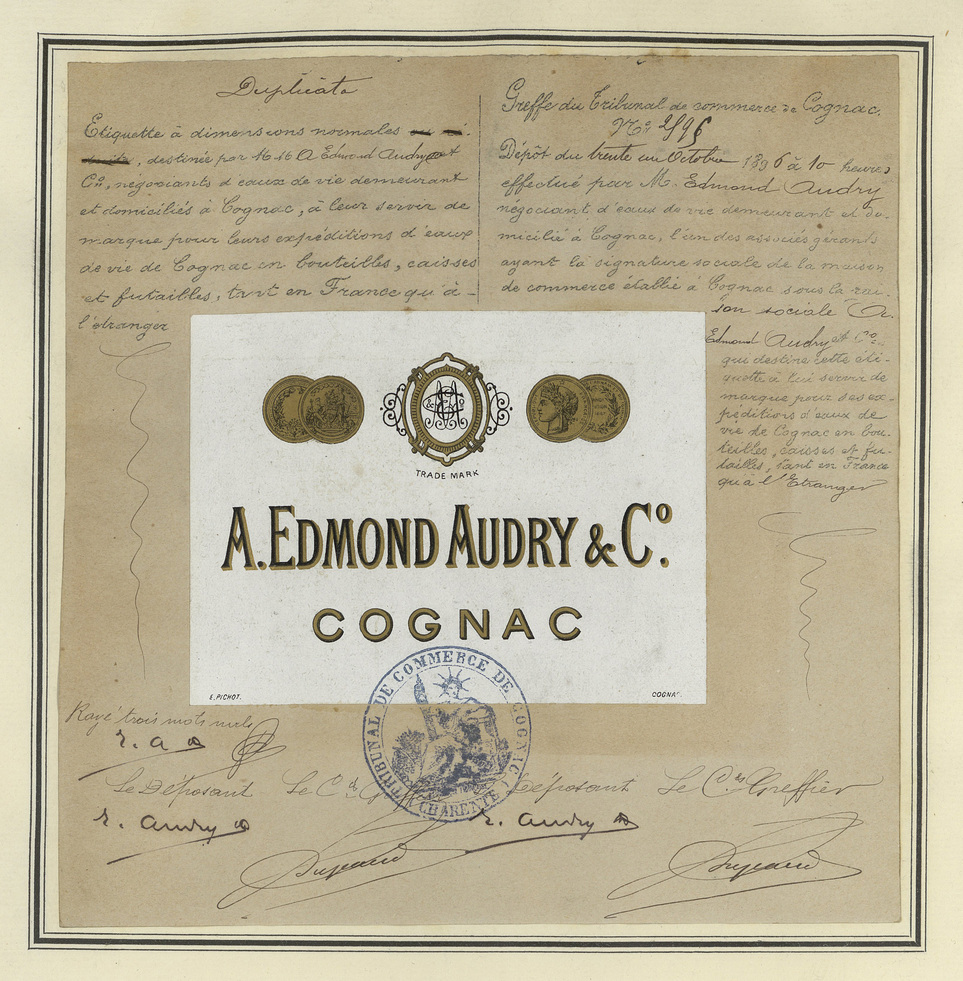 Duplicata
Etiquette à dimensions normales
, destinée par M M A Edmond Audry et
Cº, négociants d'eaux de vie demeurant
et domiciliés à Cognac, à leur servir de
marque pour leurs expéditions d'eaux
de vie de Cognac en bouteilles, caisses
et futailles, tant en France qu'à
l'étranger
Greffe du Tribunal de commerce de Cognac.
Nº
Dépôt du trente un Octobre 1896 à 10 heures
effectué par M. Edmond Audry
négociant d'eaux de vie demeurant et do-
micilié à Cognac, l'un des associés gérants
ayant la signature sociale de la maison
de commerce établie à Cognac sous la rai-
son sociale A.
Edmond Audry et Cº.
qui destine cette éti-
quette à lui servir de
marque pour ses ex-
péditions d'eaux de
vie de Cognac en bou-
teilles, caisses et fu-
tailles, tant en France
qu'à l'Etranger
TRADE MARK
A. EDMOND AUDRY & Cº.
COGNAC
E. PICHOT.
COGNAC.
TRIBUNAL DE COMMERCE DE COGNAC
CHARENTE
Rayé trois mots nuls
E. A
Le Déposant
Le C
Déposant
Le Cis Greffier
E. Audry
E. Audry